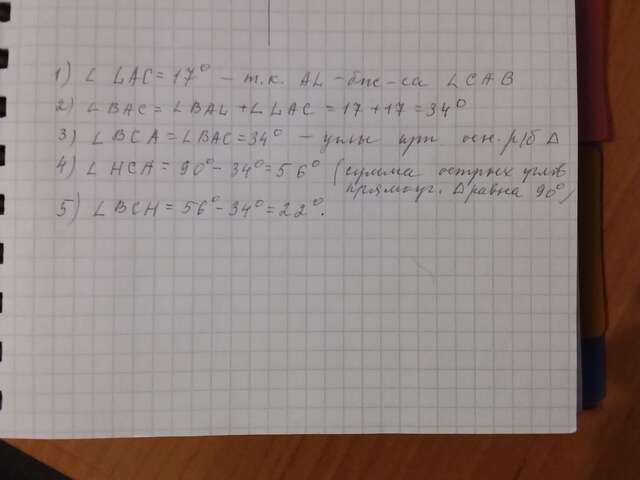 1) ∠ LAC = 17° – т.к. AL – бис-са ∠CAB
2) ∠BAC = ∠BAL + ∠LAC = 17 + 17 = 34°
3) ∠BCA = ∠BAC = 34° – углы при осн. р/б Δ
4) ∠ HCA = 90° - 34° = 56° (сумма острых углов
прямоуг. Δ равна 90°)
5) ∠BCH = 56° - 34° = 22°.